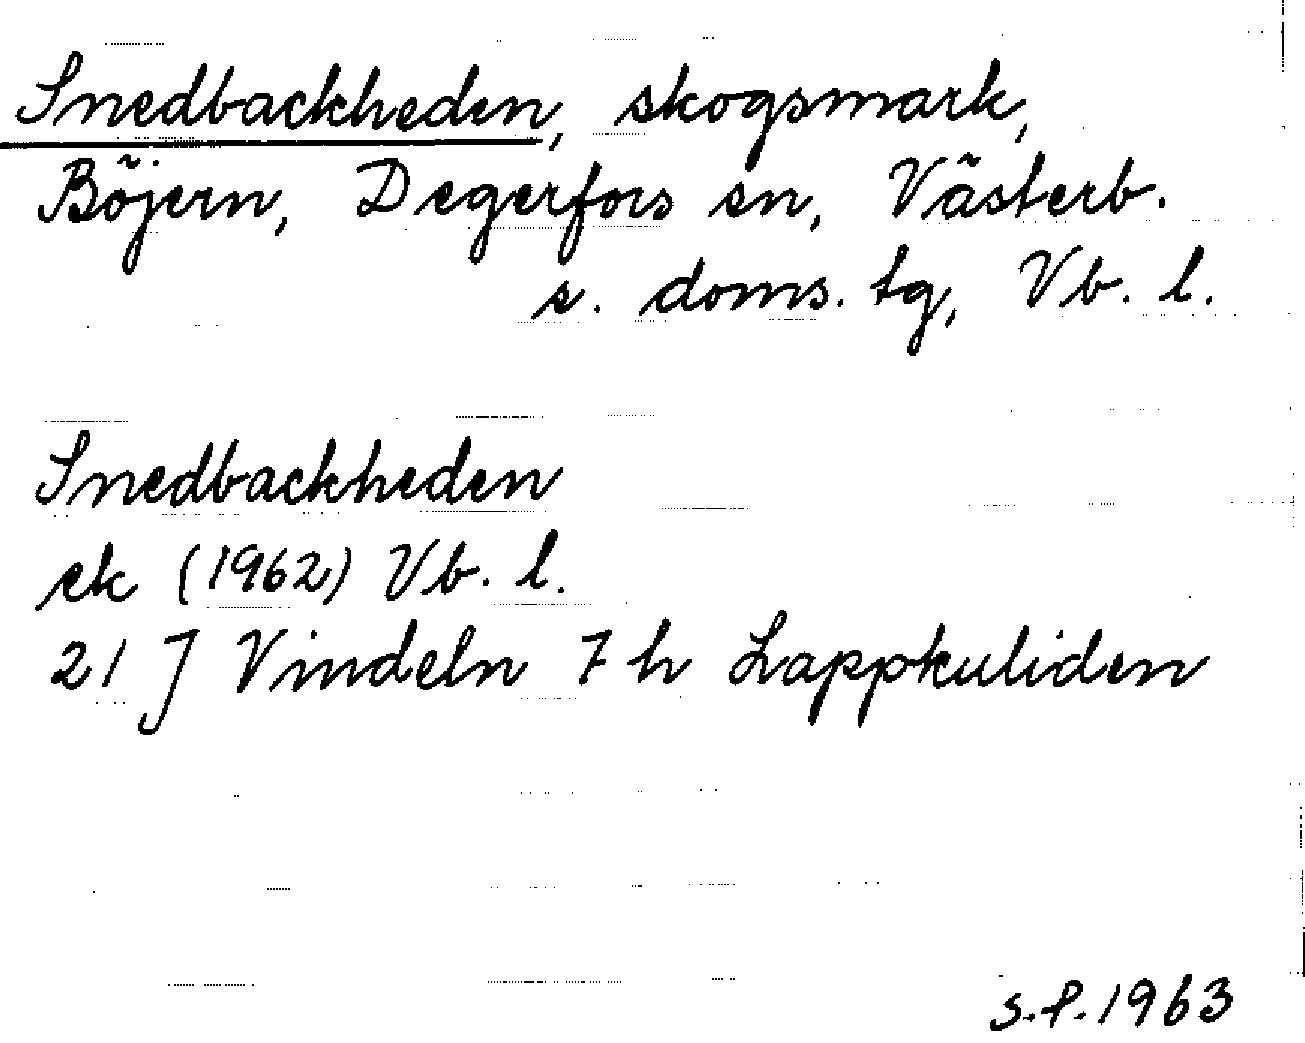 Snedbackheden, skogsmark,
Böjern, Degerfors sn, Västerb.
s. doms. tg, Vb. l.
Snedbackheden
ek (1962) Vb. l.
21 J Vindeln 7 h Lappkuliden
S.P. 1963